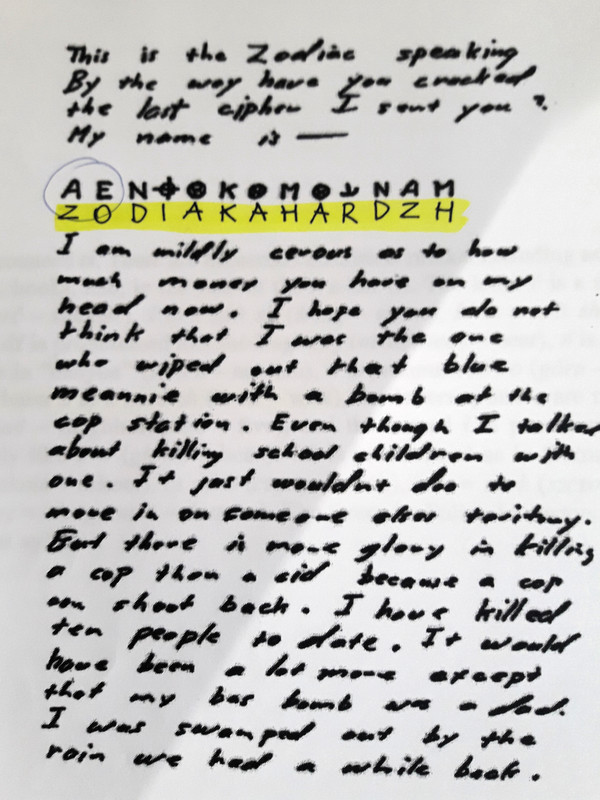 This is the Zodiac speaking
By the way have you cracked
the last cipher I sent you ?
My name is —
A E N ⌖ ⊗ K ⊗ M ⊗ ⅃ N A M
Z O D I A K A H A R D Z H
I am mildly cerous as to how
much money you have on my
head now. I hope you do not
think that I was the one
who wiped out that blue
meannie with a bomb at the
cop station. Even though I talked
about killing school children with
one. It just wouldnt doo to
move in on someone elses teritory.
But there is more glory in killing
a cop than a cid because a cop
can shoot back. I have killed
ten people to date. It would
have been a lot more except
that my bus bomb was a dud.
I was swamped out by the
rain we had a while back.